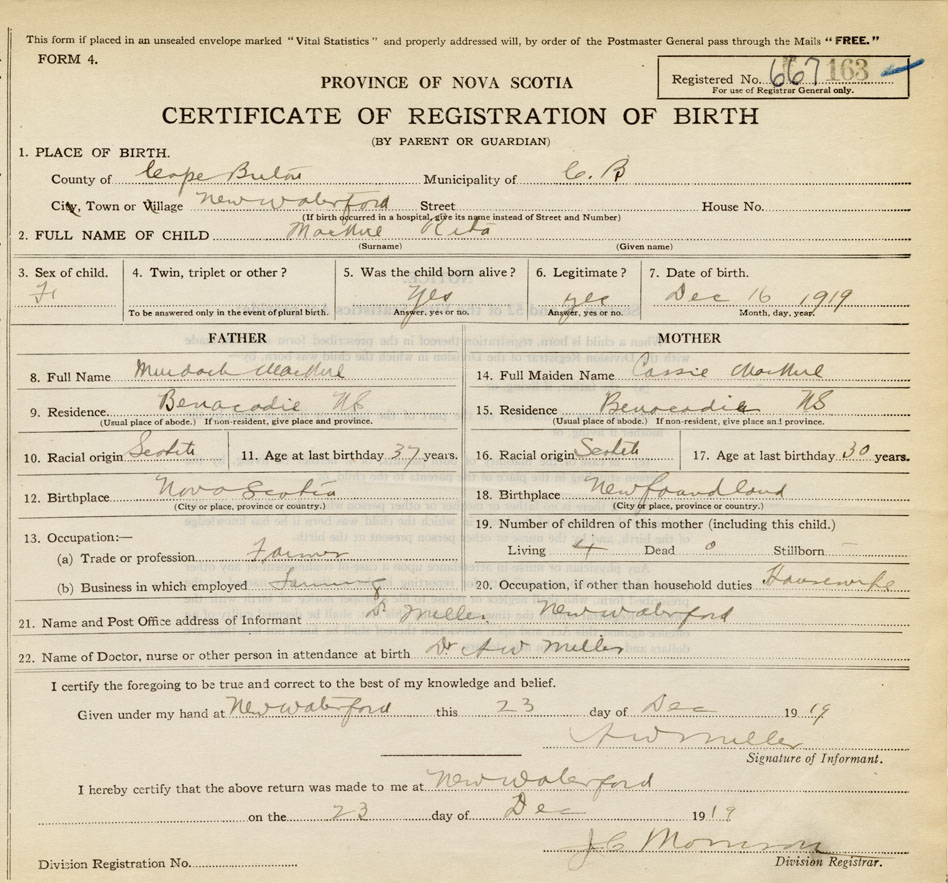 This form if placed in an unsealed envelope marked "Vital Statistics" and properly addressed will, by order of the Postmaster General pass through the Mails "FREE."
FORM 4.
PROVINCE OF NOVA SCOTIA
Registered No. 667 163
For use of Registrar General only.
CERTIFICATE OF REGISTRATION OF BIRTH
(BY PARENT OR GUARDIAN)
1. PLACE OF BIRTH.
County of Cape Breton Municipality of C. B
City, Town or Village New Waterford Street House No.
(If birth occurred in a hospital, give its name instead of Street and Number)
2. FULL NAME OF CHILD MacNeil Rita
(Surname) (Given name)
3. Sex of child. 4. Twin, triplet or other? 5. Was the child born alive? 6. Legitimate? 7. Date of birth.
F yes yes Dec 16 1919
To be answered only in the event of plural birth. Answer, yes or no. Answer, yes or no. Month, day, year.
FATHER MOTHER
8. Full Name Murdoch MacNeil 14. Full Maiden Name Cassie MacNeil
9. Residence. Benacadie NS 15. Residence Benacadie NS
(Usual place of abode.) If non-resident, give place and province. (Usual place of abode.) If non-resident, give place and province.
10. Racial origin Scotch 11. Age at last birthday 37 years. 16. Racial origin Scotch 17. Age at last birthday 30 years.
12. Birthplace Nova Scotia 18. Birthplace Newfoundland
(City or place, province or country.) (City or place, province or country.)
19. Number of children of this mother (including this child.)
13. Occupation:—
(a) Trade or profession Farmer Living 4 Dead 0 Stillborn –
(b) Business in which employed Farming 20. Occupation, if other than household duties Housewife
21. Name and Post Office address of Informant Dr Miller. New Waterford
22. Name of Doctor, nurse or other person in attendance at birth Dr A W Miller
I certify the foregoing to be true and correct to the best of my knowledge and belief.
Given under my hand at New Waterford this 23 day of Dec 1919
A W Miller
Signature of Informant.
I hereby certify that the above return was made to me at New Waterford
on the 23 day of Dec 1919
J C Morrison
Division Registration No. Division Registrar.